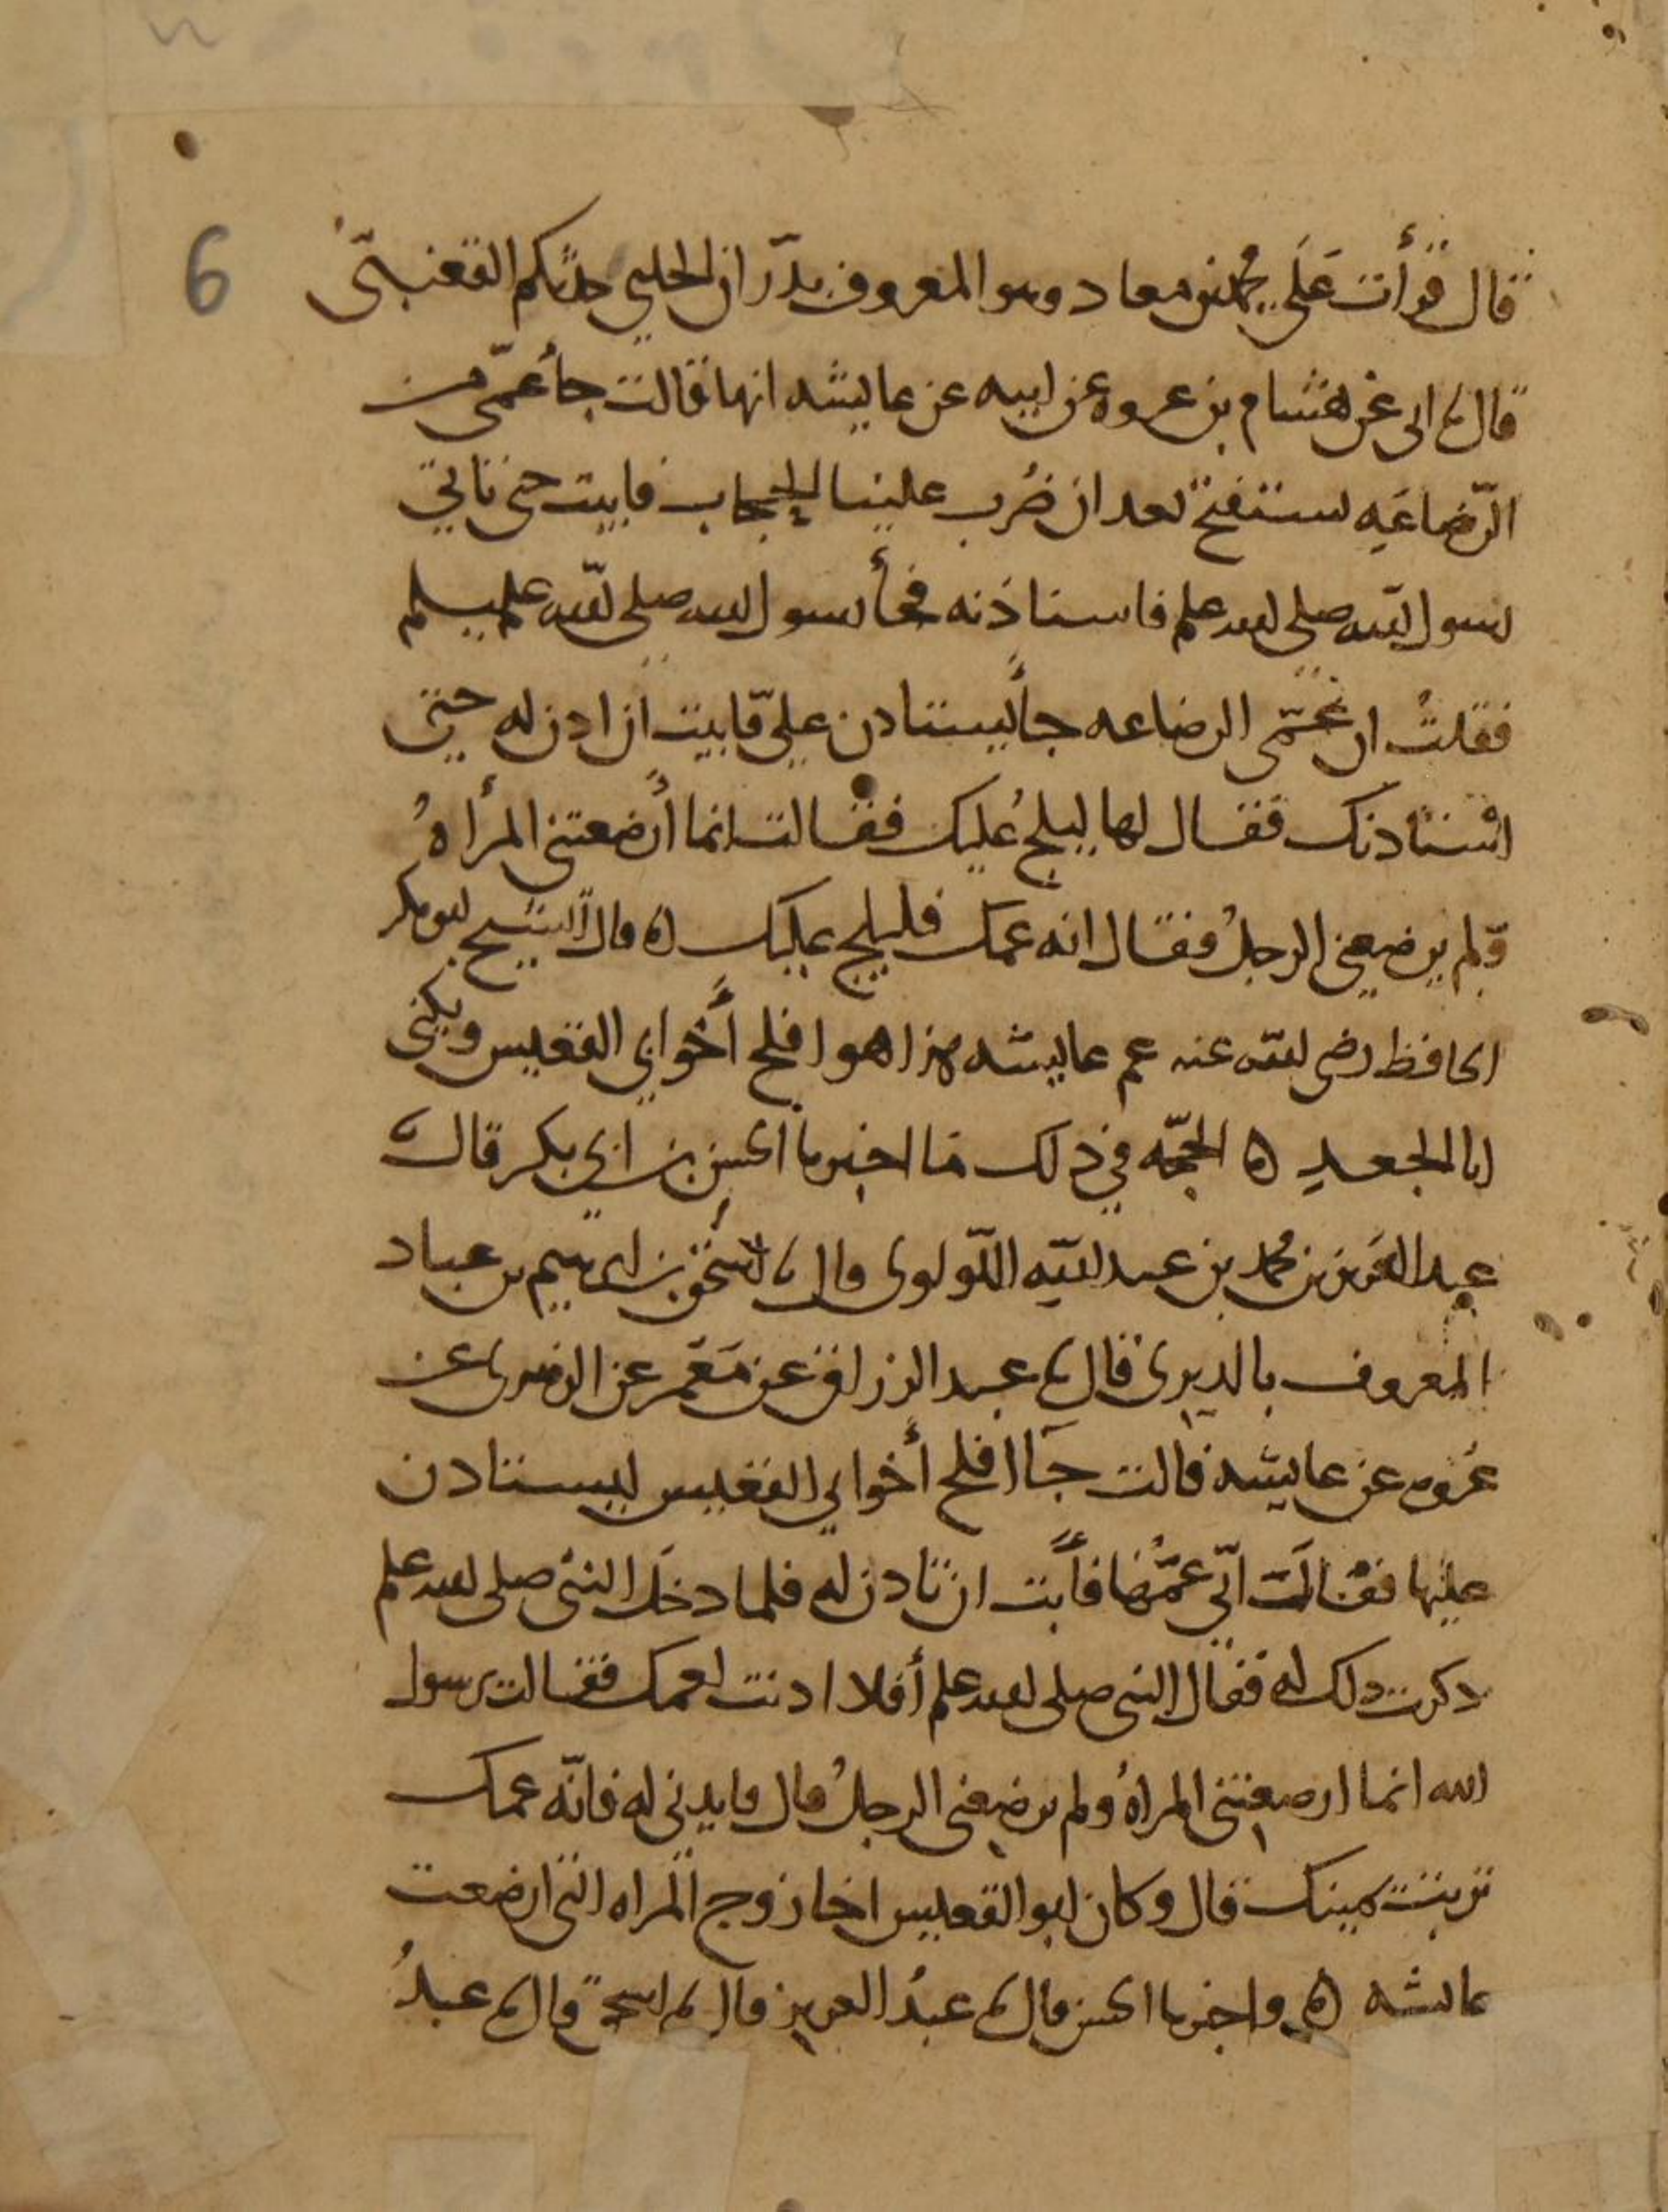 6
قال قرأت على محمد بن معاد وهو المعروف بدران الحلبي حدثكم القعنبي
قال ابى عن هشام بن عروه عن ابيه عن عايشه انها قالت جأ عمي من
الرضاعه يستفتح بعد ان ضرب علينا الحجاب فابيت حتى ياتي
رسول الله صلى الله علم فاستاذنه فجأ رسول الله صلى الله علم وسلم
فقلت ان عمى الرضاعه جأ يستادن علي فابيت ان ادن له حتى
استادنك فقال لها ليلج عليك فقالت انما أرضعتنى المرأه
ولم يرضعنى الرجل فقال انه عمك فليلج عليك ه قال الشيخ ابو بكر
الحافظ رضى الله عنه عم عايشه هذا هو افلح أخو ابي القعيس ويكنى
ابا الجعد ه الحجه في ذلك ما اخبرنا الحسن بن ابي بكر قال
عبد العزيز بن محمد بن عبد الله اللولوى قال اسحق بن ابرهيم بن عباد
المعروف بالدبرى قال عبد الرزاق عن معمر عن الزهرى عن
عروه عن عايشه قالت جا افلح أخو ابي القعيس ليستادن
عليها فقالت انى عمها فأبت ان تادن له فلما دخل النبى صلى الله علم
دكرت دلك له فقال النبى صلى الله علم أفلا ادنت لعمك فقالت يرسول
الله انما ارضعتنى المراه ولم يرضعنى الرجل قال فايدنى له فانه عمك
تربت يمينك قال وكان ابو القعيس اخا زوج المراه التى ارضعت
عايشه ه واخبرنا الحسن قال عبد العزيز قال اسحق قال عبد